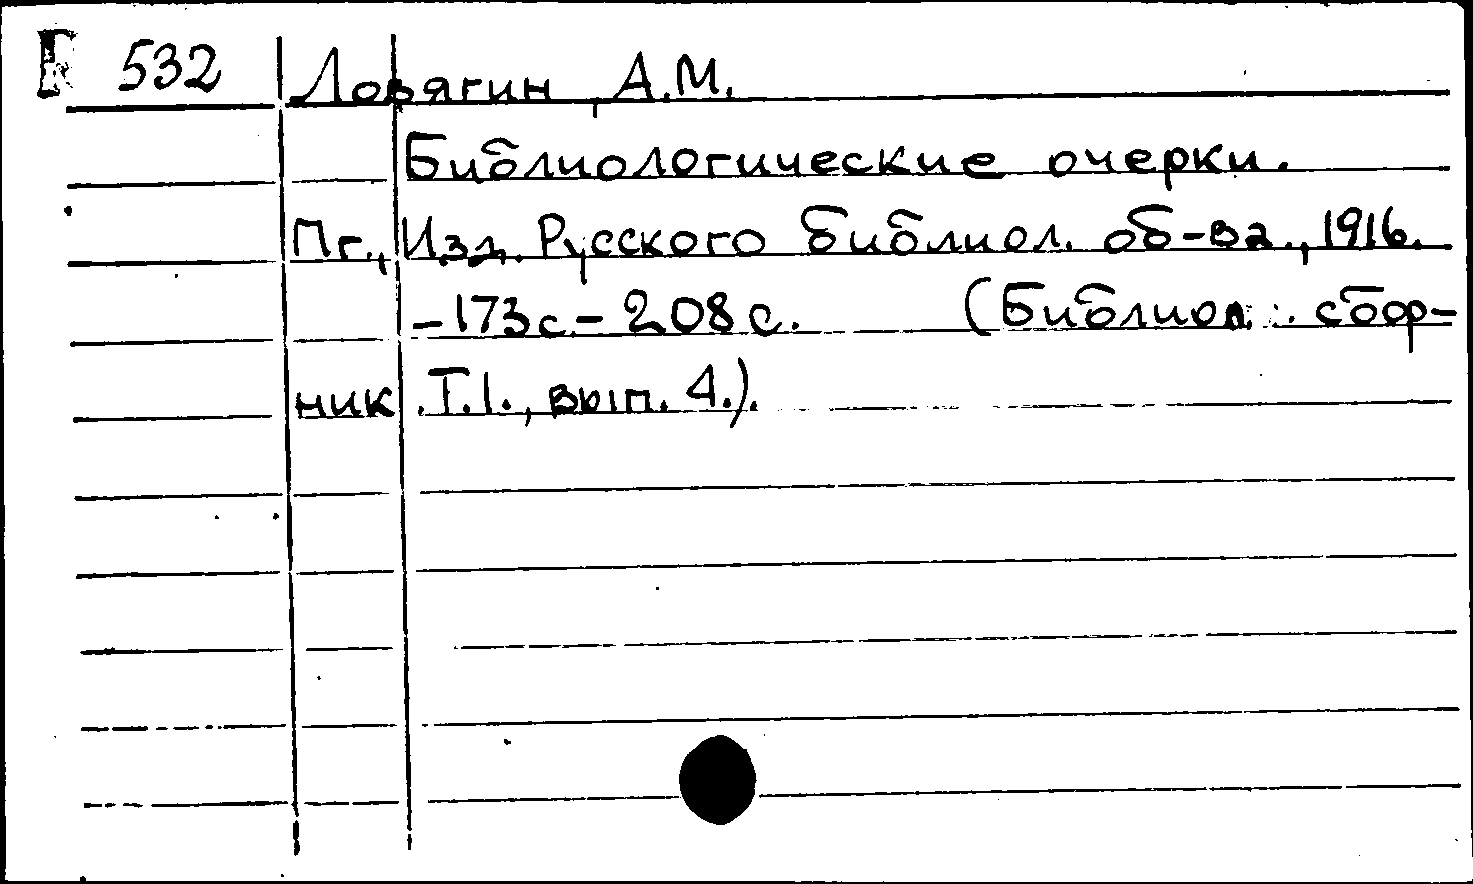 К 532 Ловягин, А.М.
Библиологические очерки.
Пг., Изд. Русского библиол. об-ва., 1916.
-173с-208с. (Библиол. сбор-
ник .Т.1., вып. 4.).